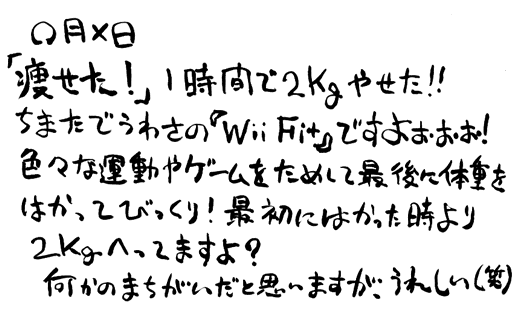 ○月×日
「痩せた！」1時間で2Kgやせた!!
ちまたでうわさの『Wii Fit』ですよぉぉぉ!
色々な運動やゲームをためして最後に体重を
はかってびっくり！最初にはかった時より
2Kgへってますよ？
何かのまちがいだと思いますが、うれしい(笑)